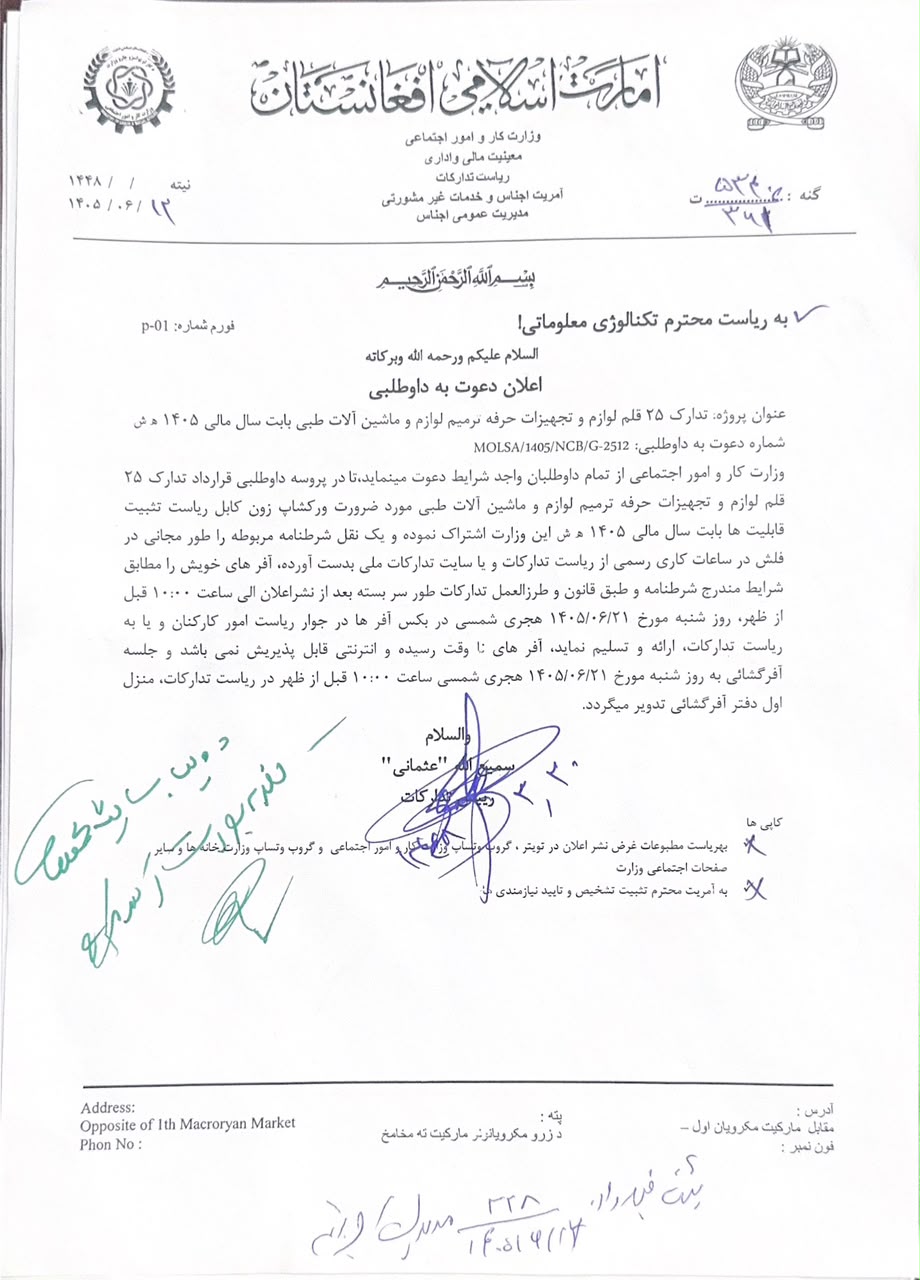 امارت اسلامی افغانستان
وزارت کار و امور اجتماعی
معینیت مالی واداری
ریاست تدارکات
آمریت اجناس و خدمات غیر مشورتی
مدیریت عمومی اجناس
نیته / / ۱۴۴۸
۱۴۰۵ / ۰۶ / ۱۲
گنه : ت
بسم الله الرحمن الرحیم
به ریاست محترم تکنالوژی معلوماتی!
فورم شماره: p-01
السلام علیکم ورحمه الله وبرکاته
اعلان دعوت به داوطلبی
عنوان پروژه: تدارک ۲۵ قلم لوازم و تجهیزات حرفه ترمیم لوازم و ماشین آلات طبی بابت سال مالی ۱۴۰۵ ه ش
شماره دعوت به داوطلبی: MOLSA/1405/NCB/G-2512
وزارت کار و امور اجتماعی از تمام داوطلبان واجد شرایط دعوت مینماید،تا در پروسه داوطلبی قرارداد تدارک ۲۵
قلم لوازم و تجهیزات حرفه ترمیم لوازم و ماشین آلات طبی مورد ضرورت ورکشاپ زون کابل ریاست تثبیت
قابلیت ها بابت سال مالی ۱۴۰۵ ه ش این وزارت اشتراک نموده و یک نقل شرطنامه مربوطه را طور مجانی در
فلش در ساعات کاری رسمی از ریاست تدارکات و یا سایت تدارکات ملی بدست آورده، آفر های خویش را مطابق
شرایط مندرج شرطنامه و طبق قانون و طرزالعمل تدارکات طور سر بسته بعد از نشراعلان الی ساعت ۱۰:۰۰ قبل
از ظهر، روز شنبه مورخ ۱۴۰۵/۰۶/۲۱ هجری شمسی در بکس آفر ها در جوار ریاست امور کارکنان و یا به
ریاست تدارکات، ارائه و تسلیم نماید، آفر های نا وقت رسیده و انترنتی قابل پذیریش نمی باشد و جلسه
آفرگشائی به روز شنبه مورخ ۱۴۰۵/۰۶/۲۱ هجری شمسی ساعت ۱۰:۰۰ قبل از ظهر در ریاست تدارکات، منزل
اول دفتر آفرگشائی تدویر میگردد.
والسلام
سمیع الله "عثمانی"
رییس تدارکات
کاپی ها
بهریاست مطبوعات غرض نشر اعلان در تویتر ، گروپ وتساپ وزارت کار و امور اجتماعی و گروپ وتساپ وزارت خانه ها و سایر
صفحات اجتماعی وزارت
به آمریت محترم تثبیت تشخیص و تایید نیازمندی ها
Address:
Opposite of 1th Macroryan Market
Phon No :
پته :
د زرو مکرویانونو مارکیت ته مخامخ
آدرس :
مقابل مارکیت مکرویان اول –
فون نمبر :